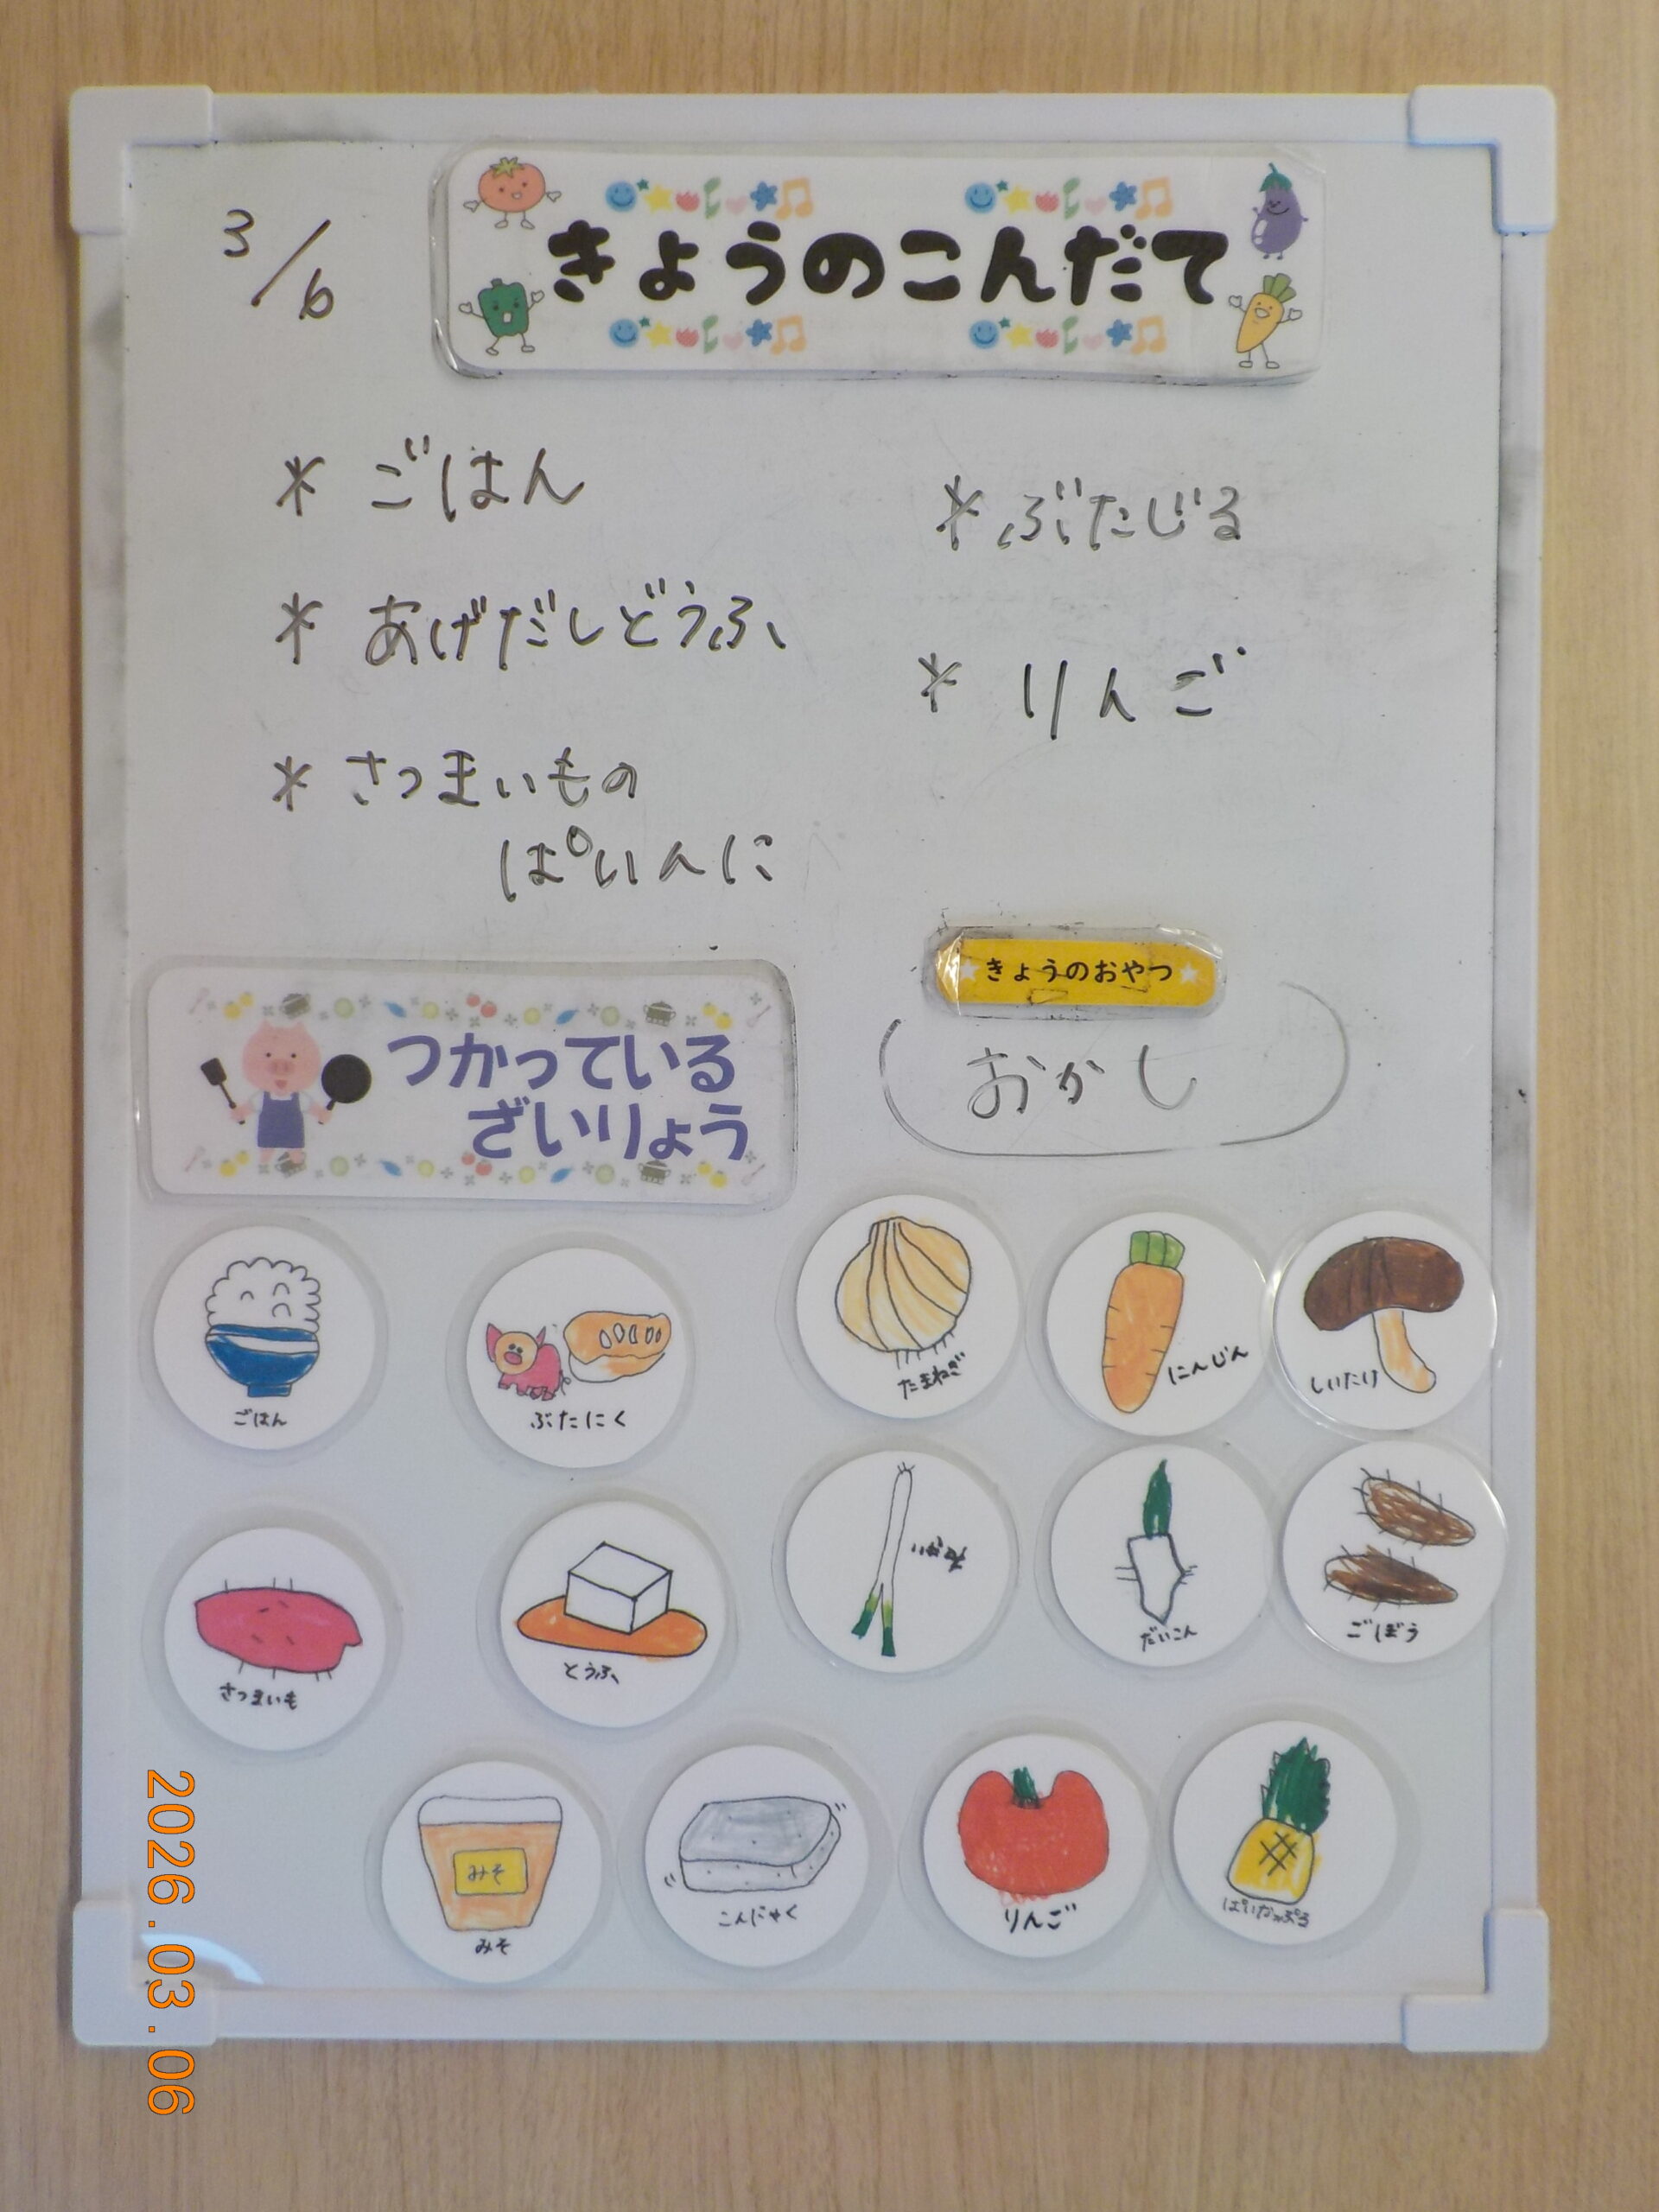 3/6
きょうのこんだて
* ごはん
* あげだしどうふ
* さつまいもの
ぱいんに
* ぶたじる
* りんご
きょうのおやつ
おかし
つかっている
ざいりょう
ごはん
ぶたにく
たまねぎ
にんじん
しいたけ
さつまいも
とうふ
だいこん
ごぼう
みそ
みそ
こんにゃく
りんご
ぱいなっぷる
2026.03.06